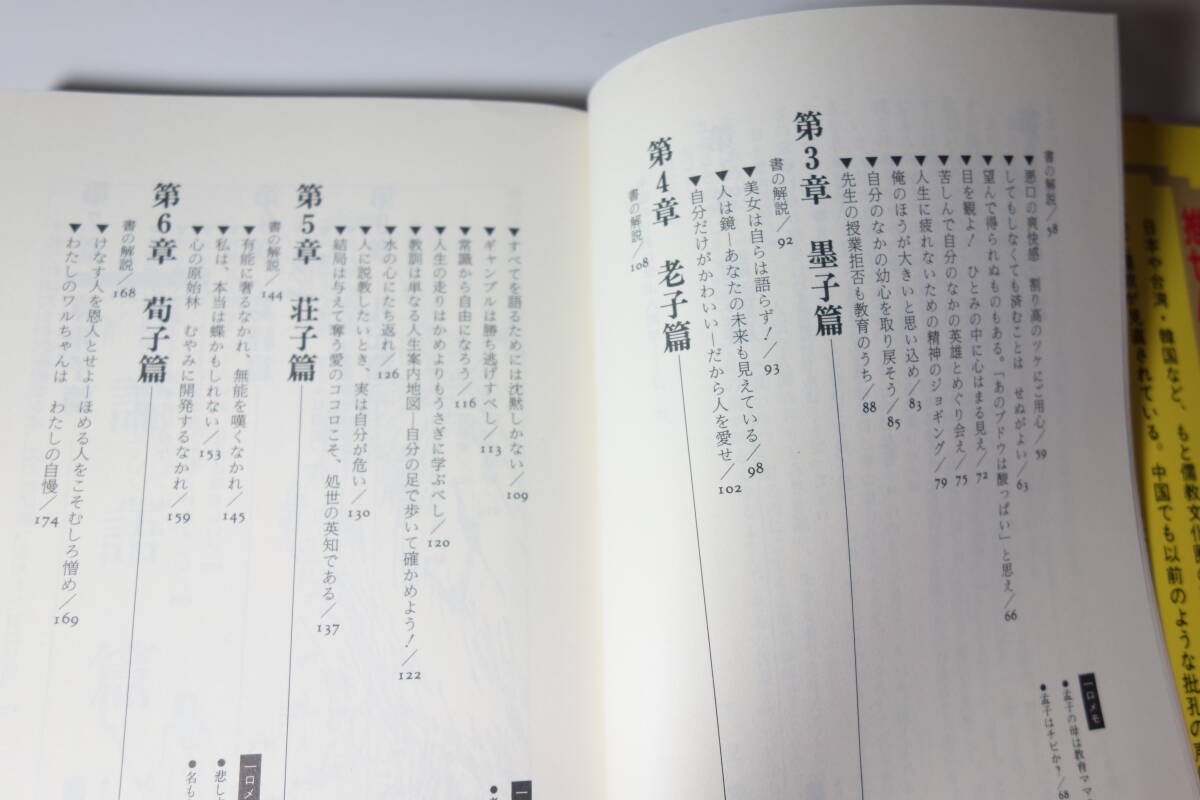 書の解説／58
▼悪口の爽快感　割り高のツケにご用心／59
▼してもしなくても済むことは　せぬがよい／63
▼望んで得られぬものもある。「あのブドウは酸っぱい」と思え／66
▼目を観よ！　ひとみの中に心はまる見え／72
▼苦しんで自分のなかの英雄とめぐり会え／75
▼人生に疲れないための精神のジョギング／79
▼俺のほうが大きいと思い込め／83
▼自分のなかの幼心を取り戻そう／85
▼先生の授業拒否も教育のうち／88
第3章　墨子篇
書の解説／92
▼美女は自らは語らず！／93
▼人は鏡―あなたの未来も見えている／98
▼自分だけがかわいい―だから人を愛せ／102
第4章　老子篇
書の解説／108
一口メモ
●孟子の母は教育ママ
●孟子はチビか？／68
▼すべてを語るためには沈黙しかない／109
▼ギャンブルは勝ち逃げすべし／113
▼常識から自由になろう／116
▼人生の走りはかめよりもうさぎに学ぶべし／120
▼教訓は単なる人生案内地図―自分の足で歩いて確かめよう！／122
▼水の心にたち返れ／126
▼人に説教したいとき、実は自分が危い／130
▼結局は与えて奪う愛のココロこそ、処世の英知である／137
第5章　荘子篇
書の解説／144
▼有能に奢るなかれ、無能を嘆くなかれ／145
▼私は、本当は蝶かもしれない／153
▼心の原始林　むやみに開発するなかれ／159
第6章　荀子篇
書の解説／168
▼けなす人を恩人とせよ―ほめる人をこそむしろ憎め／169
▼わたしのワルちゃんは　わたしの自慢／174
一
一口メ
●悲し
●名も
日本や台湾・韓国など、もと儒教文化圏の
見直されている。中国でも以前のような批孔の